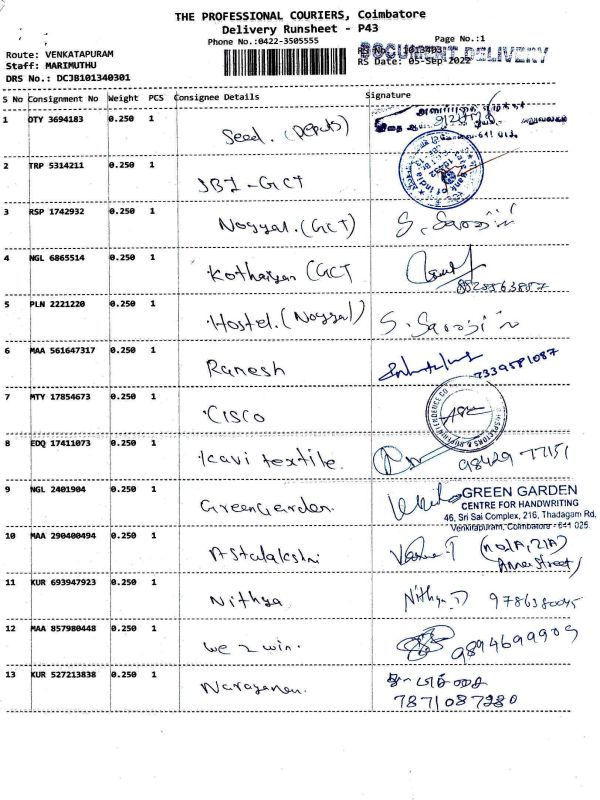 THE PROFESSIONAL COURIERS, Coimbatore
Delivery Runsheet - P43
Phone No.:0422-3505555
Page No.:1
Route: VENKATAPURAM
Staff: MARIMUTHU
DRS No.: DCJB101340301
RS No.: 1013403
DOCUMENT DELIVERY
RS Date: 05-Sep-2022
S No Consignment No Weight PCS Consignee Details Signature
1 OTY 3694183 0.250 1 Seed.
2 TRP 5314211 0.250 1 GCT
Bank of India
3 RSP 1742932 0.250 1 Noyyal. (GCT) S. Sarojini
4 NGL 6865514 0.250 1 (GCT
5 PLN 2221220 0.250 1 Hostel. (Noyyal) S. Sarojini
6 MAA 561647317 0.250 1 Ranesh 7339581087
7 MTY 17854673 0.250 1 CISCO
8 EDQ 17411073 0.250 1 Kavi textile. 98429 77151
9 NGL 2401904 0.250 1 Green Garden.
GREEN GARDEN
CENTRE FOR HANDWRITING
46, Sri Sai Complex, 216, Thadagam Rd,
Venkatapuram, Coimbatore - 641 025.
10 MAA 290400494 0.250 1
11 KUR 693947923 0.250 1 Nithya Nithya
12 MAA 857980448 0.250 1 we 2 win. 9894699909
13 KUR 527213838 0.250 1 Narayanan.
7871087280